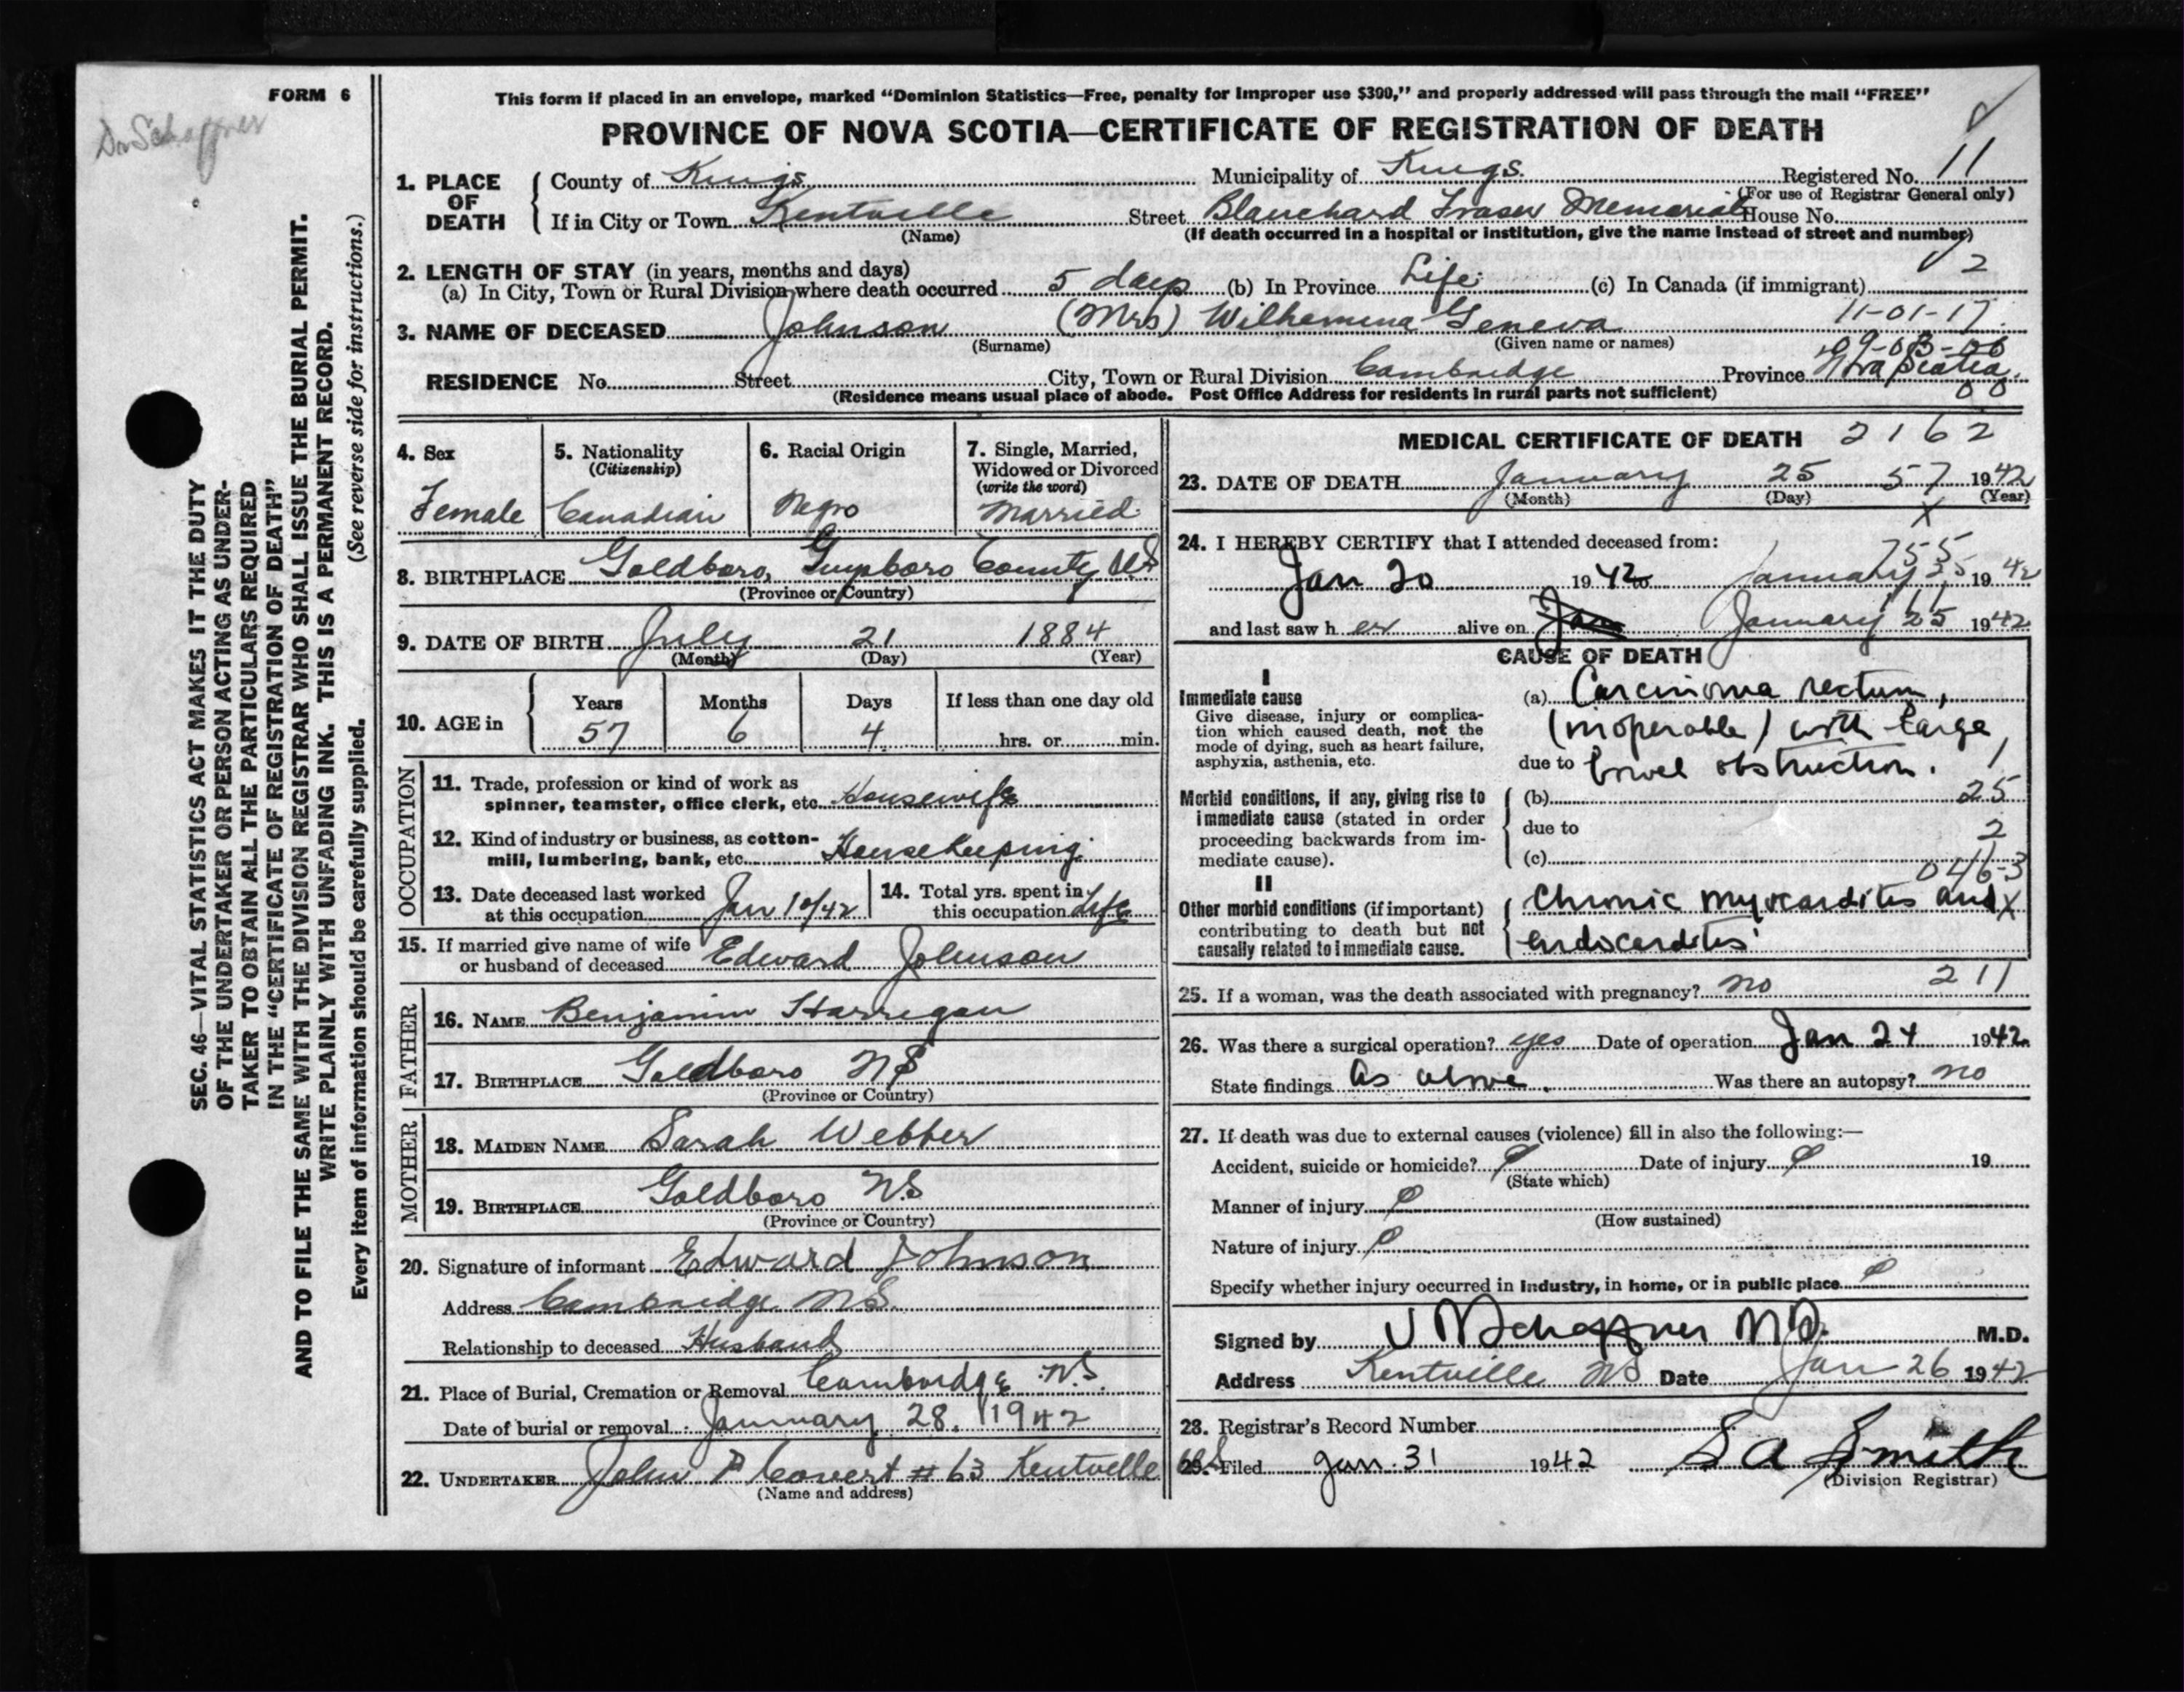 FORM 6
Dr Schaffner
SEC. 46—VITAL STATISTICS ACT MAKES IT THE DUTY
OF THE UNDERTAKER OR PERSON ACTING AS UNDER-
TAKER TO OBTAIN ALL THE PARTICULARS REQUIRED
IN THE "CERTIFICATE OF REGISTRATION OF DEATH"
AND TO FILE THE SAME WITH THE DIVISION REGISTRAR WHO SHALL ISSUE THE BURIAL PERMIT.
WRITE PLAINLY WITH UNFADING INK. THIS IS A PERMANENT RECORD.
Every item of information should be carefully supplied. (See reverse side for instructions.)
This form if placed in an envelope, marked "Dominion Statistics—Free, penalty for improper use $300," and properly addressed will pass through the mail "FREE"
PROVINCE OF NOVA SCOTIA—CERTIFICATE OF REGISTRATION OF DEATH
1. PLACE OF DEATH County of Kings Municipality of Kings. Registered No. 11
(For use of Registrar General only)
If in City or Town Kentville Street Blanchard Fraser Memorial House No.
(Name) (If death occurred in a hospital or institution, give the name instead of street and number)
2. LENGTH OF STAY (in years, months and days) 2
(a) In City, Town or Rural Division where death occurred 5 days (b) In Province Life (c) In Canada (if immigrant)
11-01-17
3. NAME OF DECEASED Johnson (Mrs) Wilhemina Geneva
(Surname) (Given name or names) 09-03-00
RESIDENCE No. Street City, Town or Rural Division Cambridge Province Nova Scotia.
(Residence means usual place of abode. Post Office Address for residents in rural parts not sufficient) 00
4. Sex Female
5. Nationality (Citizenship) Canadian
6. Racial Origin Negro
7. Single, Married, Widowed or Divorced (write the word) Married
8. BIRTHPLACE Goldboro, Guysboro County NS
(Province or Country)
9. DATE OF BIRTH July 21 1884
(Month) (Day) (Year)
10. AGE in Years 57 Months 6 Days 4 If less than one day old hrs. or min.
OCCUPATION
11. Trade, profession or kind of work as
spinner, teamster, office clerk, etc. Housewife
12. Kind of industry or business, as cotton-
mill, lumbering, bank, etc. Housekeeping
13. Date deceased last worked
at this occupation Jan 10/42
14. Total yrs. spent in
this occupation Life
15. If married give name of wife
or husband of deceased Edward Johnson
FATHER
16. NAME Benjamin Harrigan
17. BIRTHPLACE Goldboro NS
(Province or Country)
MOTHER
18. MAIDEN NAME Sarah Webber
19. BIRTHPLACE Goldboro N.S
(Province or Country)
20. Signature of informant Edward Johnson
Address Cambridge N.S.
Relationship to deceased Husband
21. Place of Burial, Cremation or Removal Cambridge N.S.
Date of burial or removal January 28. 1942
22. UNDERTAKER John P Covert # 63 Kentville
(Name and address)
MEDICAL CERTIFICATE OF DEATH 2162
23. DATE OF DEATH January 25 57 1942
(Month) (Day) (Year)
X
24. I HEREBY CERTIFY that I attended deceased from: 755
Jan 20 1942 to January 25 1942
and last saw her alive on January 25 1942
CAUSE OF DEATH
I
Immediate cause
Give disease, injury or complica-
tion which caused death, not the
mode of dying, such as heart failure,
asphyxia, asthenia, etc.
(a) Carcinoma rectum,
(inoperable) with large
due to bowel obstruction. 1
Morbid conditions, if any, giving rise to
immediate cause (stated in order
proceeding backwards from im-
mediate cause).
(b) 25
due to 2
(c) 046-3
II
Other morbid conditions (if important)
contributing to death but not
causally related to immediate cause.
Chronic myocarditis and X
endocarditis
25. If a woman, was the death associated with pregnancy? no 211
26. Was there a surgical operation? yes Date of operation Jan 24 1942
State findings as above. Was there an autopsy? no
27. If death was due to external causes (violence) fill in also the following:—
Accident, suicide or homicide? Date of injury 19
(State which)
Manner of injury
(How sustained)
Nature of injury
Specify whether injury occurred in industry, in home, or in public place
Signed by Schaffner MD. M.D.
Address Kentville NS Date Jan 26 1942
28. Registrar's Record Number
29. Filed Jan. 31 1942 S A Smith
(Division Registrar)